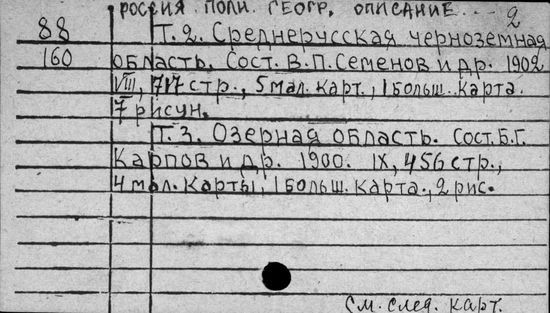 РОССИЯ. ПОЛН. ГЕОГР. ОПИСАНИЕ... 2
88 Т.2. Среднерусская черноземная
160 область. Сост. В.П. Семенов и др. 1902
VIII, 717 стр., 5 мал. карт., 1 больш. карта.
7 рисун.
Т.3. Озерная область. Сост. Б.Г.
Карпов и др. 1900. IX, 456 стр.,
4 мал. карты, 1 больш. карта., 2 рис.
См. след. карт.